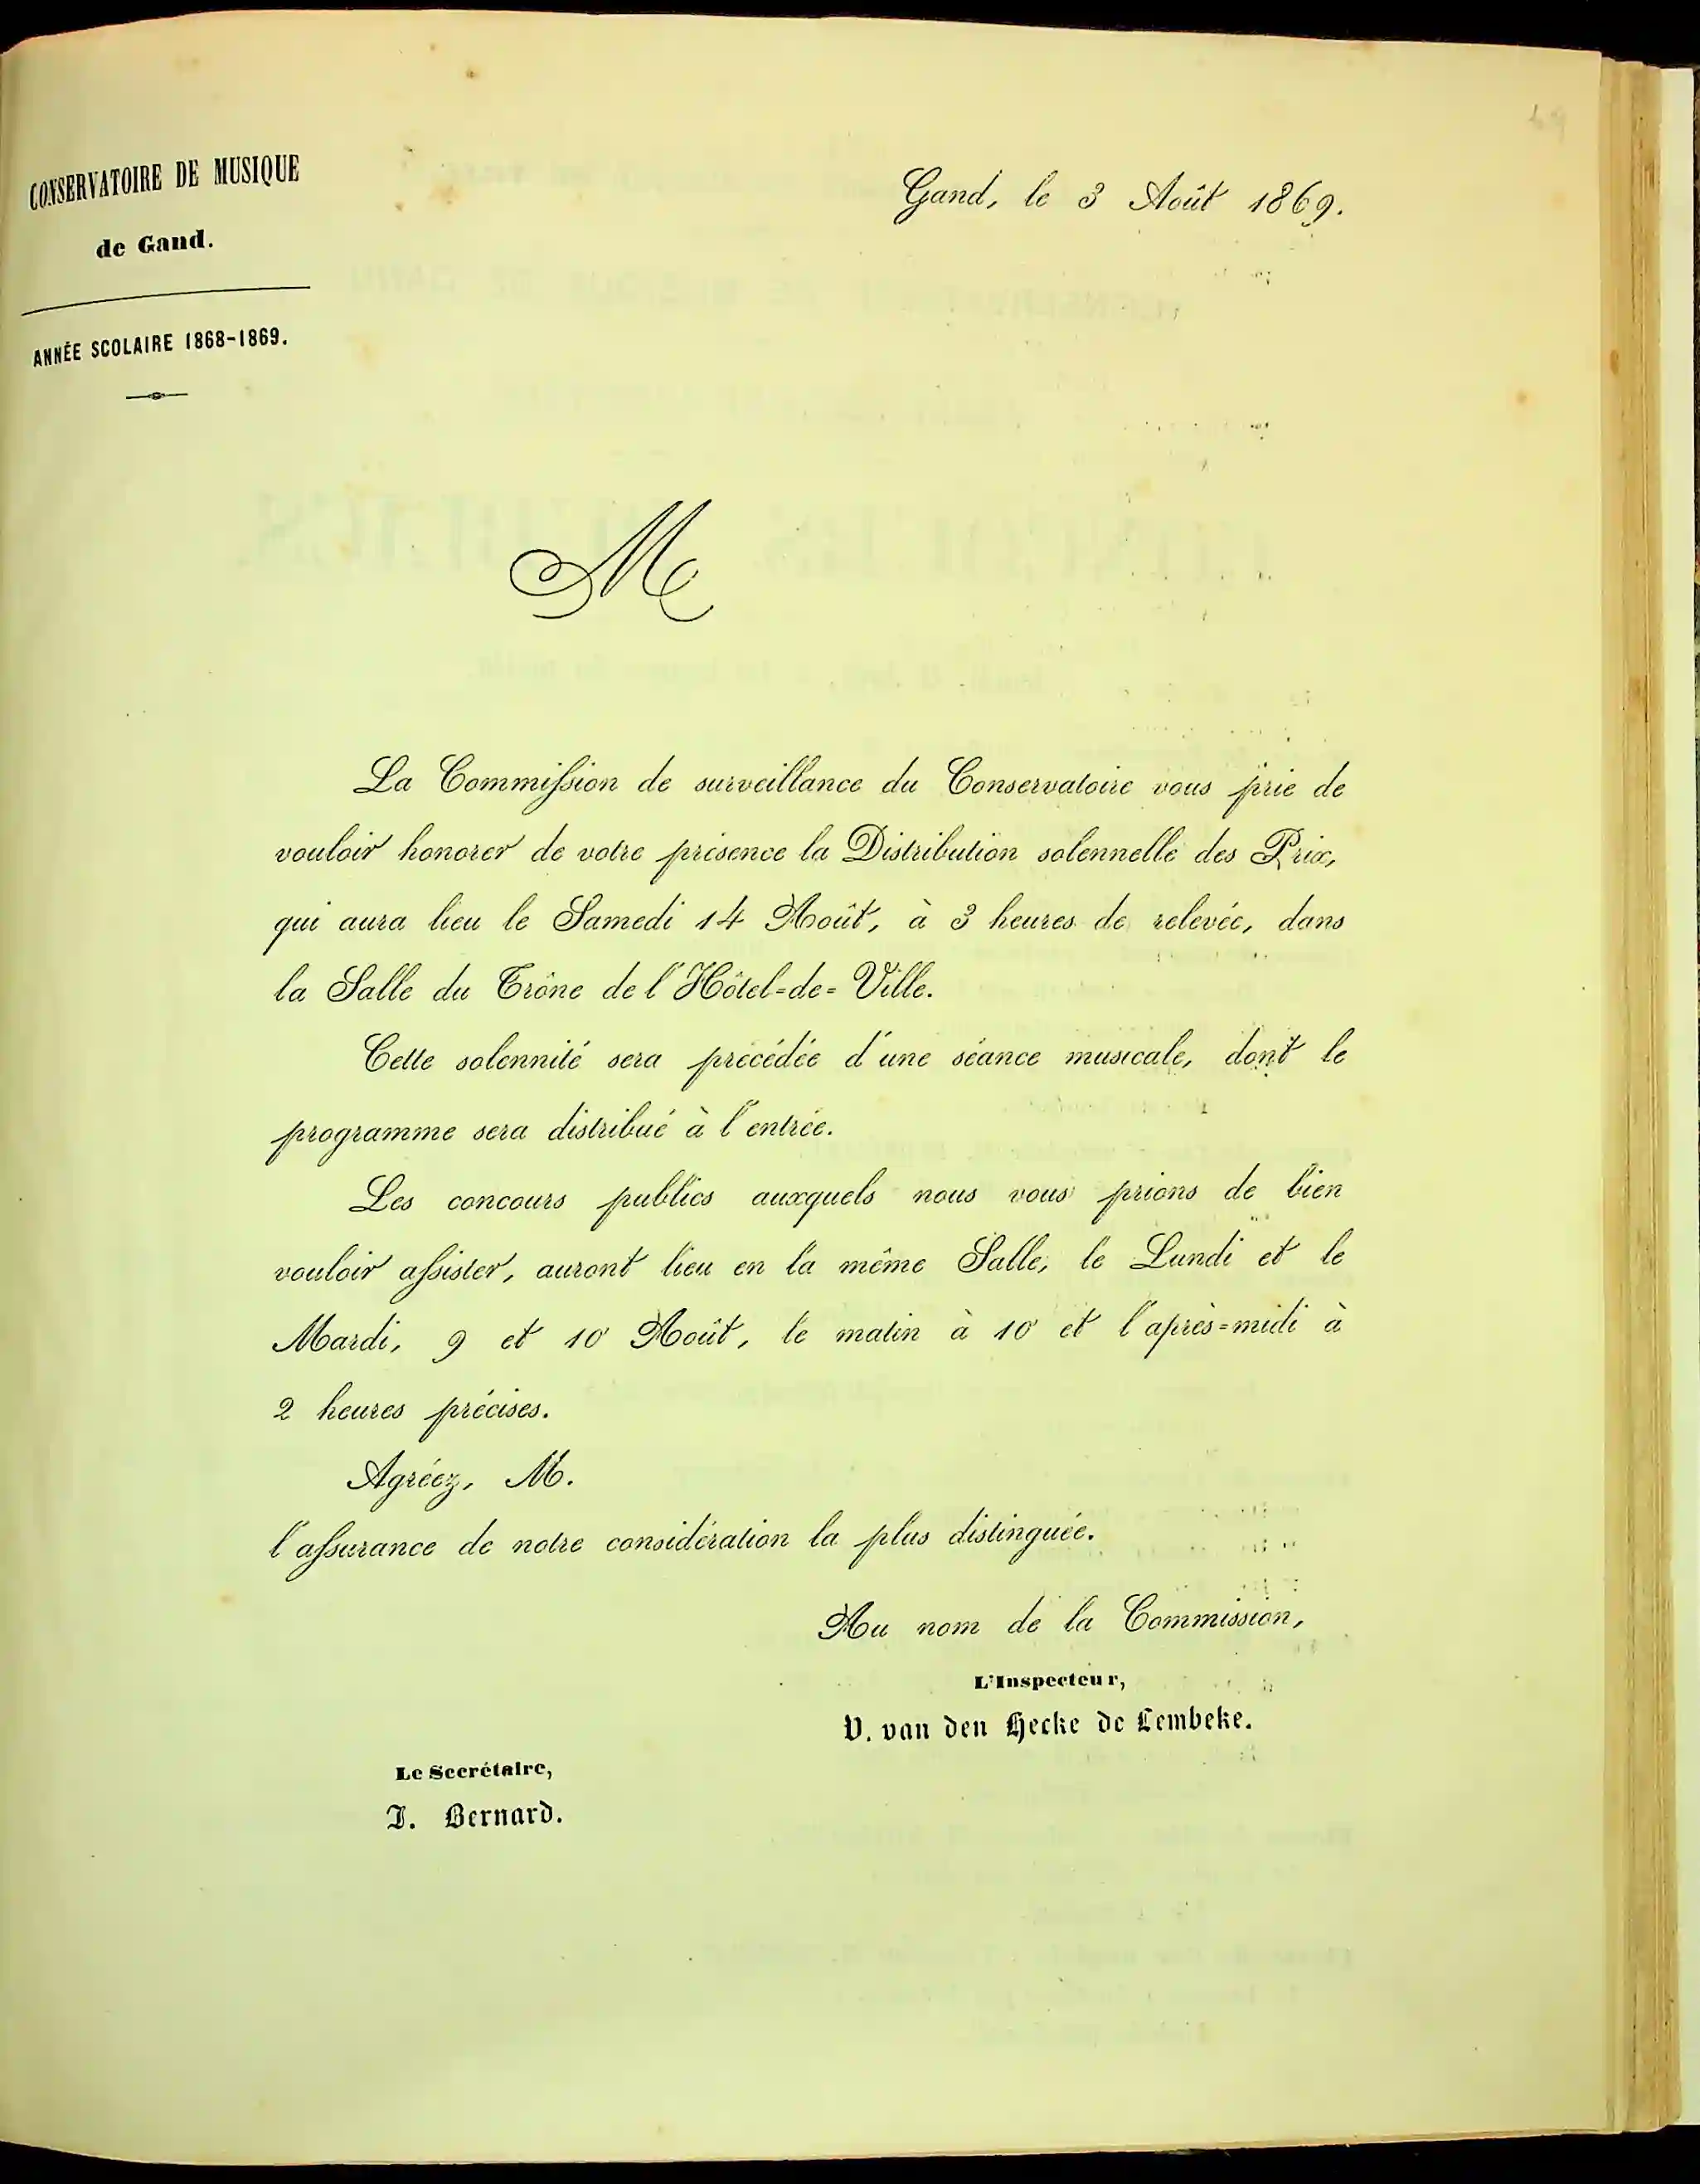 CONSERVATOIRE DE MUSIQUE
de Gand.
ANNÉE SCOLAIRE 1868-1869.
69
Gand, le 3 Août 1869.
M
La Commission de surveillance du Conservatoire vous prie de
vouloir honorer de votre présence la Distribution solennelle des Prix,
qui aura lieu le Samedi 14 Août, à 3 heures de relevée, dans
la Salle du Trône de l'Hôtel-de-Ville.
Cette solennité sera précédée d'une séance musicale, dont le
programme sera distribué à l'entrée.
Les concours publics auxquels nous vous prions de bien
vouloir assister, auront lieu en la même Salle, le Lundi et le
Mardi, 9 et 10 Août, le matin à 10 et l'après-midi à
2 heures précises.
Agréez, M.
l'assurance de notre considération la plus distinguée.
Au nom de la Commission,
L'Inspecteur,
V. van den Hecke de Lembeke.
Le Secrétaire,
J. Bernard.